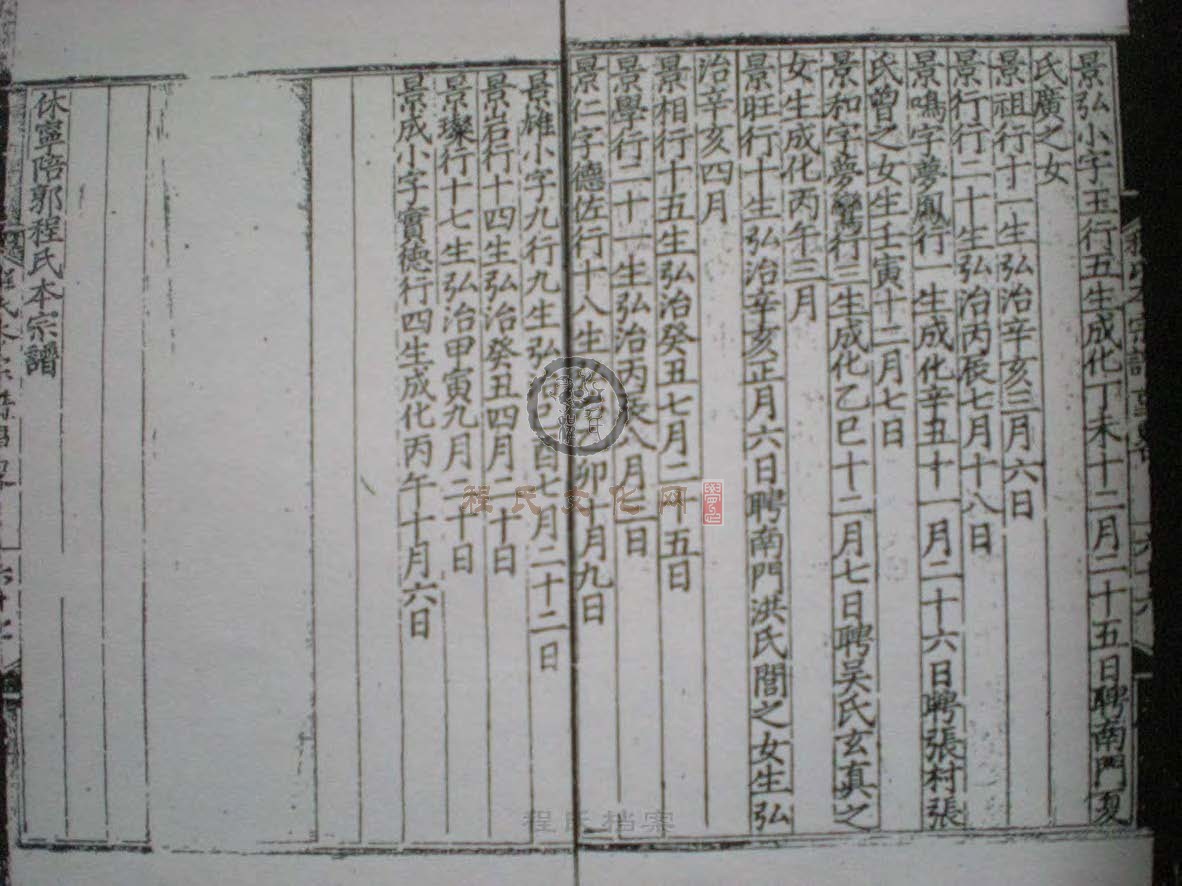 景弘小字玉行五生成化丁未十二月二十五日聘南門夏
氏廣之女
景祖行十一生弘治辛亥三月六日
景行行二十生弘治丙辰七月十八日
景鳴字夢鳳行一生成化辛丑十一月二十六日聘張村張
氏曾之女生壬寅十二月七日
景和字夢鸞行三生成化乙巳十二月七日聘吴氏玄真之
女生成化丙午三月
景旺行十生弘治辛亥正月六日聘南門洪氏誾之女生弘
治辛亥四月
景相行十五生弘治癸丑七月二十五日
景學行二十一生弘治丙辰八月二日
景仁字德佐行十八生弘治乙卯十月九日
景雄小字九行九生弘治己酉七月二十二日
景岩行十四生弘治癸丑四月二十日
景璨行十七生弘治甲寅九月二十日
景成小字實德行四生成化丙午十月六日
休寧陪郭程氏本宗譜
程氏文化网
程氏档案